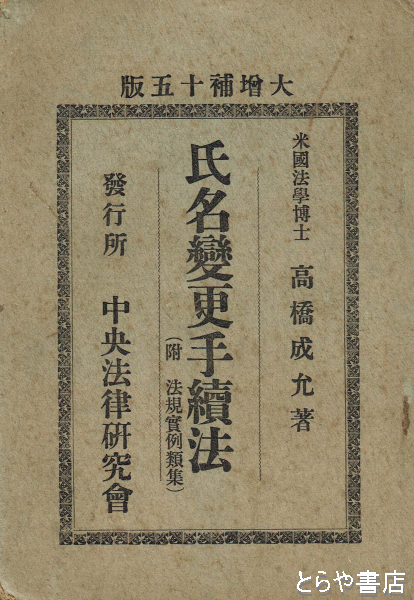 大增補十五版
米國法學博士 高橋成允著
氏名變更手續法
(附 法規實例類集)
發行所 中央法律硏究會
とらや書店